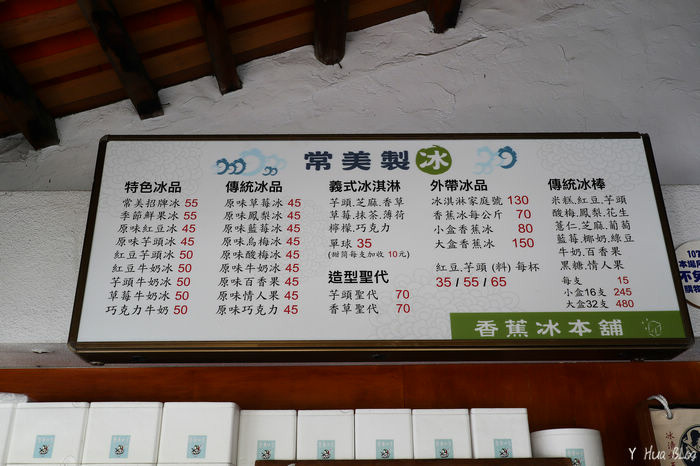 常美製冰
特色冰品
常美招牌冰 55
季節鮮果冰 55
原味紅豆冰 45
原味芋頭冰 45
芋頭牛奶冰 50
紅豆牛奶冰 50
芋頭牛奶冰 50
草莓牛奶冰 50
巧克力牛奶 50
傳統冰品
原味草莓冰 45
原味鳳梨冰 45
原味藍莓冰 45
原味烏梅冰 45
原味酸梅冰 45
原味牛奶冰 45
原味百香果 45
原味情人果 45
原味巧克力 45
義式冰淇淋
芋頭.芝麻.香草
草莓.抹茶.薄荷
檸檬.巧克力
單球 35
(甜筒每支加收 10元)
造型聖代
芋頭聖代 70
香草聖代 70
外帶冰品
冰淇淋家庭號 130
香蕉冰每公斤 70
小盒香蕉冰 80
大盒香蕉冰 150
紅豆.芋頭 (料) 每杯
35 / 55 / 65
傳統冰棒
米糕.紅豆.芋頭
酸梅.鳳梨.花生
薏仁.芝麻.葡萄
藍莓.椰奶.綠豆
牛奶.百香果
黑糖.情人果
每支 15
小盒16支 245
大盒32支 480
香蕉冰本舖
Y Hua Blog